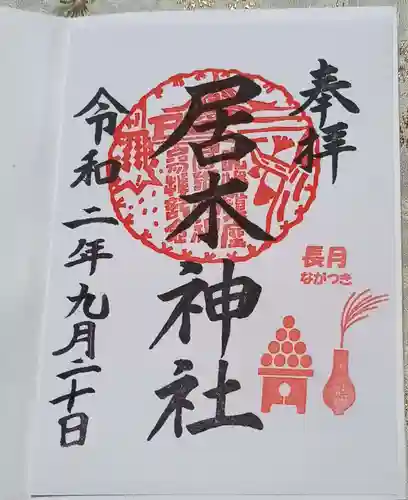 奉拝
長月
ながつき
居木神社
令和二年九月二十日